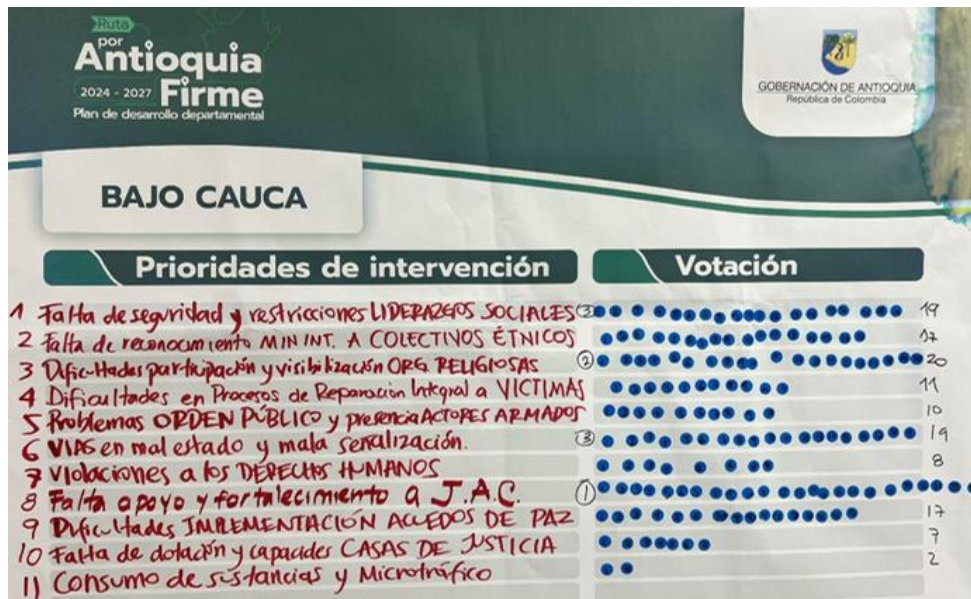 Ruta
por
Antioquia
2024 - 2027 Firme
Plan de desarrollo departamental
GOBERNACIÓN DE ANTIOQUIA
República de Colombia
BAJO CAUCA
Prioridades de intervención Votación
1 Falta de seguridad y restricciones LIDERAZGOS SOCIALES ③ 19
2 Falta de reconocimiento MIN INT. A COLECTIVOS ÉTNICOS 17
3 Dificultades participación y visibilización ORG RELIGIOSAS ② 20
4 Dificultades en Procesos de Reparación Integral a VICTIMAS 11
5 Problemas ORDEN PÚBLICO y presencia ACTORES ARMADOS 10
6 VIAS en mal estado y mala señalización. ③ 19
7 Violaciones a los DERECHOS HUMANOS 8
8 Falta apoyo y fortalecimiento a J.A.C. ①
9 Dificultades IMPLEMENTACIÓN ACUEDOS DE PAZ 17
10 Falta de dotación y capacides CASAS DE JUSTICIA 7
11 Consumo de sustancias y Microtráfico 2